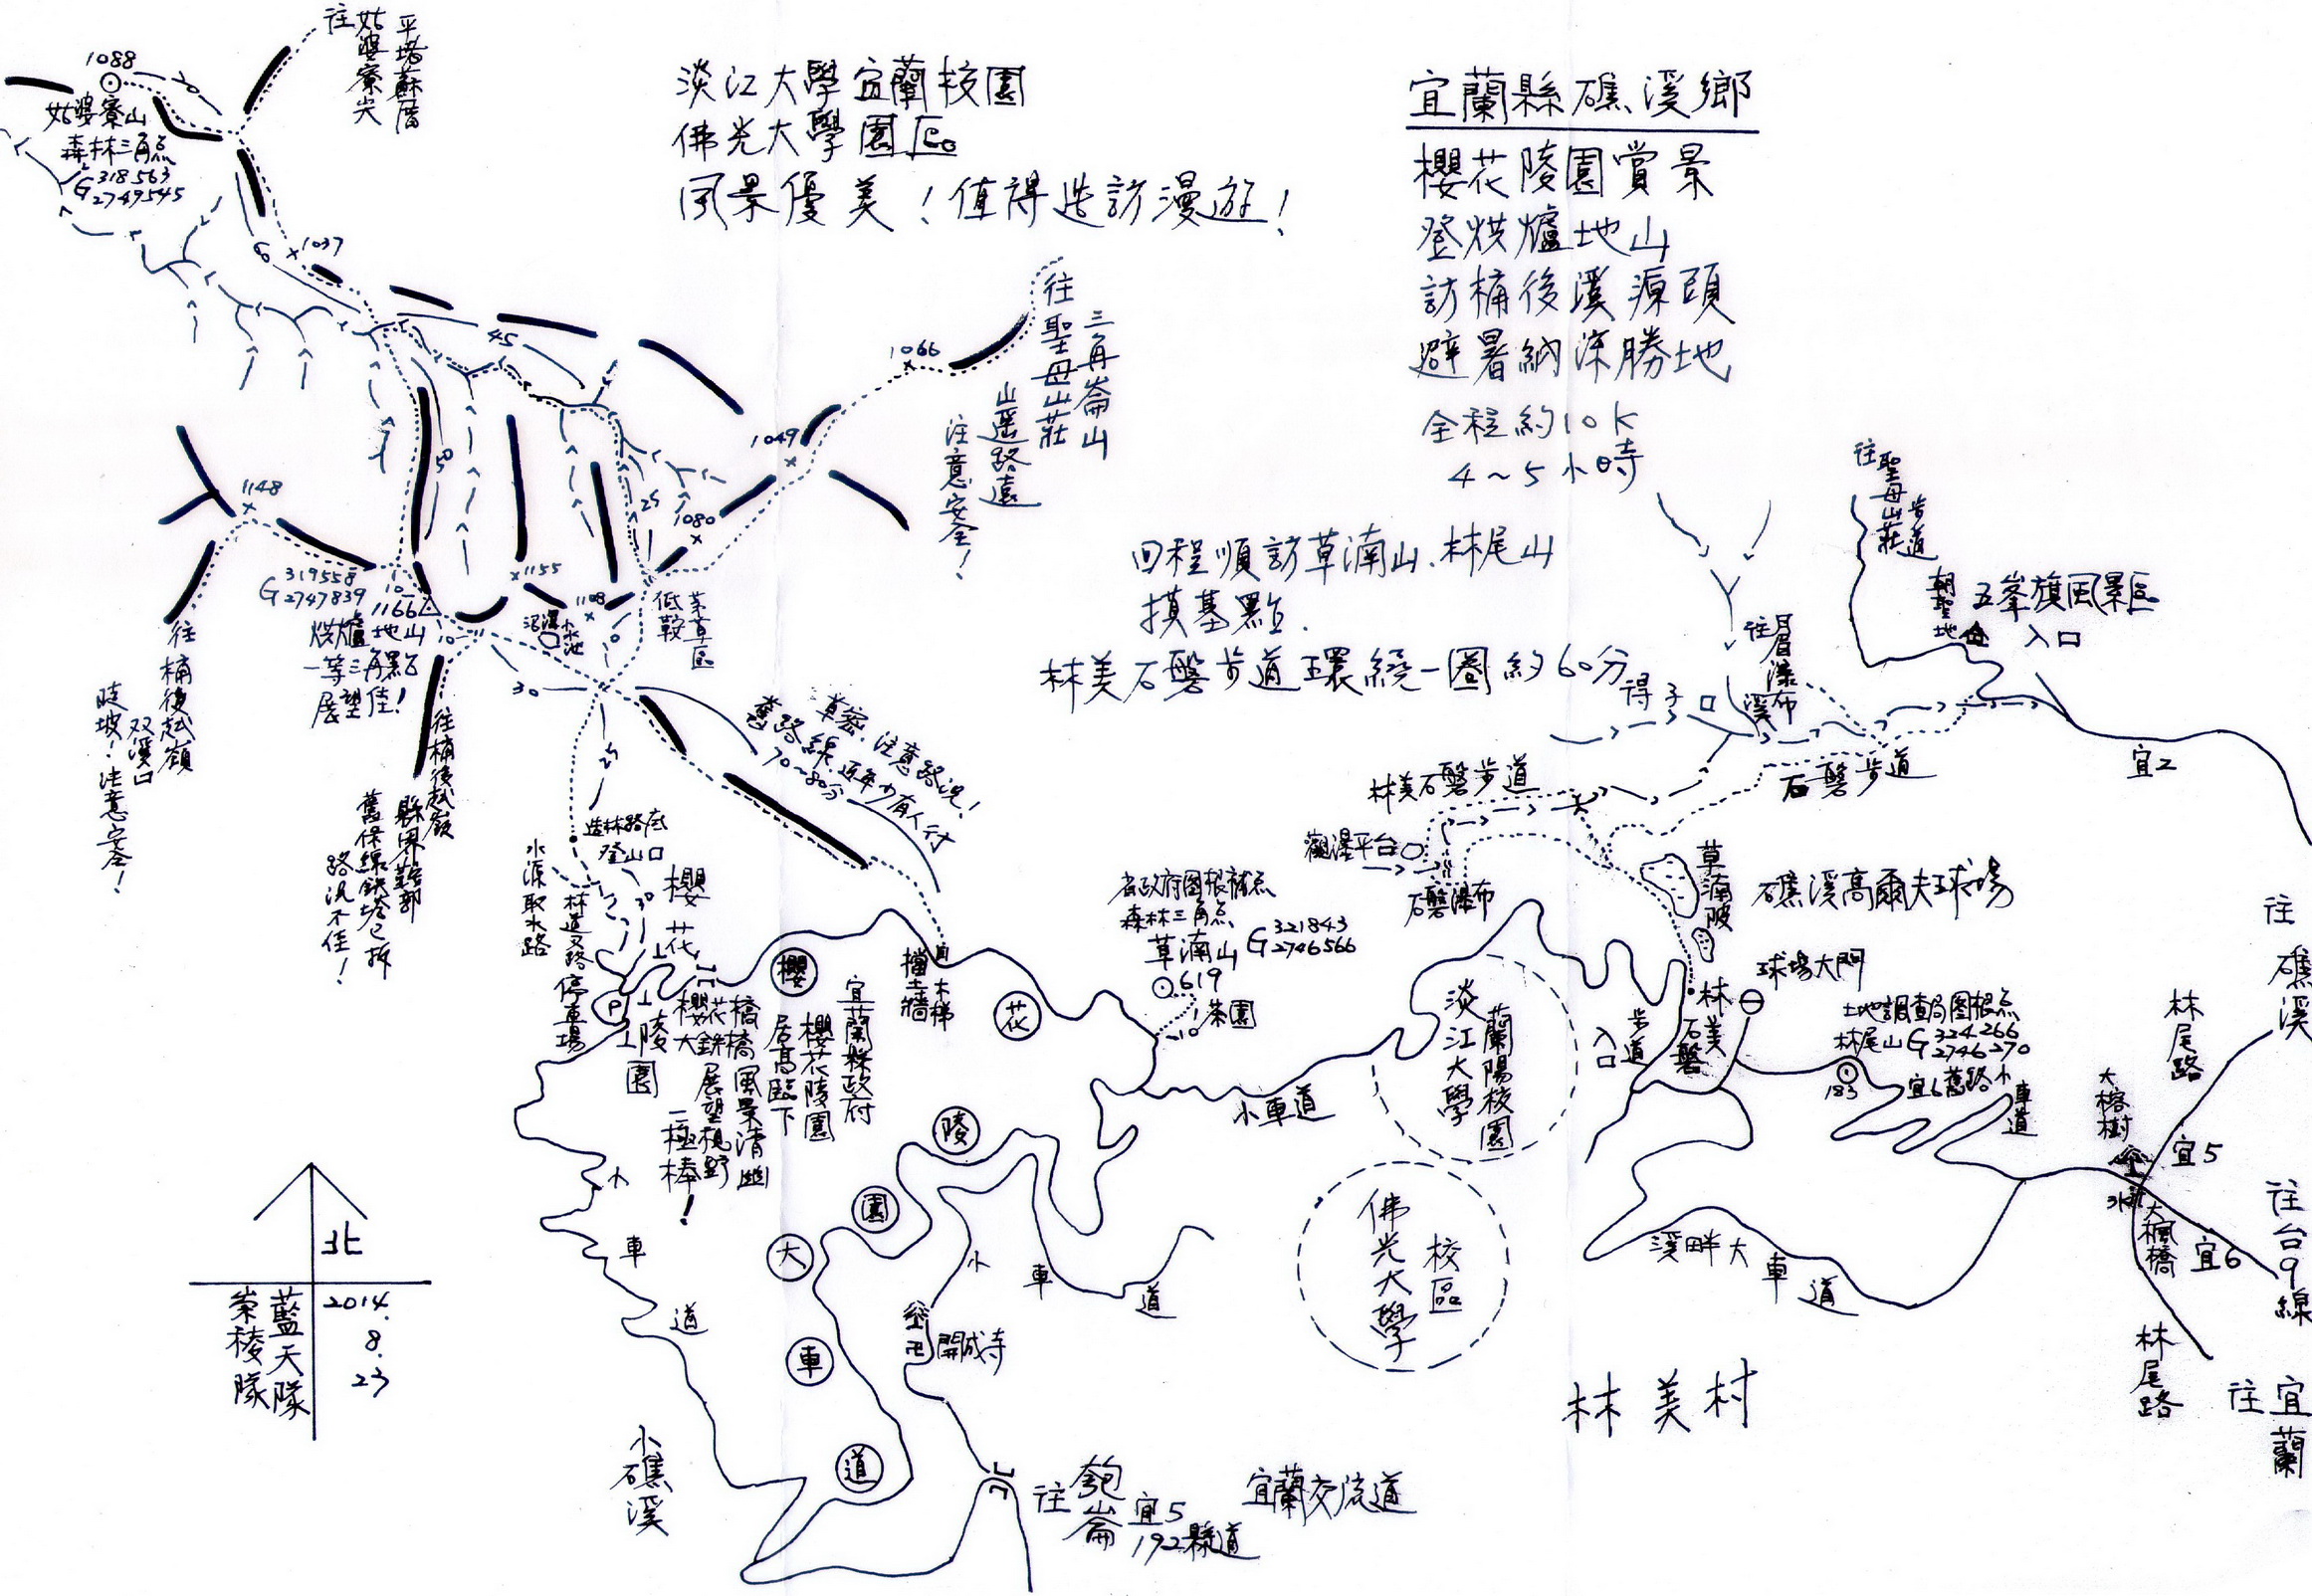 宜蘭縣礁溪鄉
櫻花陵園賞景
登烘爐地山
訪桶後溪源頭
避暑納涼勝地
全程約10K
4~5小時
回程順訪草湳山、林尾山
摸基點.
林美石磐步道環繞一圈約60分
淡江大學宜蘭校園
佛光大學園區
風景優美！值得造訪漫遊！
往姑婆寮尖
1088
姑婆寮山
森林三角点
G 318563
2749545
6
1037
45
1066
往聖母山莊
三角崙山
山遥路遠
注意安全！
1049
50
25
1080
1148
319558
G 2747839
10
1166
烘爐地山
一等三角點
展望佳！
1155
1108
水池
低鞍
茅草區
10
30
往桶後越嶺
双溪口
陡坡！注意安全！
往桶後越嶺
縣界幹部
舊保線鉄塔已拆
路況不佳！
草密，注意路況！
舊路線，近年少有人行
70~80分
造林路底
登山口
水源取水路
林道叉路
30
停車場
P
櫻花
陵園
櫻花大
橋風景清幽
展望視野
一極棒！
宜蘭縣政府
櫻花陵園
居高臨下
擋土牆
木梯
櫻
花
陵
園
大
車
道
省政府圖根補点
森林三角点
草湳山
G 321843
2746566
619
10
茶園
小車道
淡江大學
蘭陽校園
佛光大學
校區
步道
入口
林美石磐
往聖母山莊
步道
朝聖地
五峯旗風景區
入口
往眉瀑布
得子
溪
宜2
石磐步道
林美石磐步道
觀瀑平台
石磐瀑布
草湳陂
礁溪高爾夫球場
球場大門
土地調查局圖根点
林尾山 G 324266
2746270
183
宜6舊路小
車道
大榕樹
林尾路
往礁溪
宜5
大楓橋
宜6
往台9線
林尾路
往宜蘭
溪畔大車道
林美村
小車道
開成寺
小車道
小礁溪
往匏崙
宜5
192縣道
宜蘭交流道
北
2014.
8.
23
藍天隊
崇稜隊